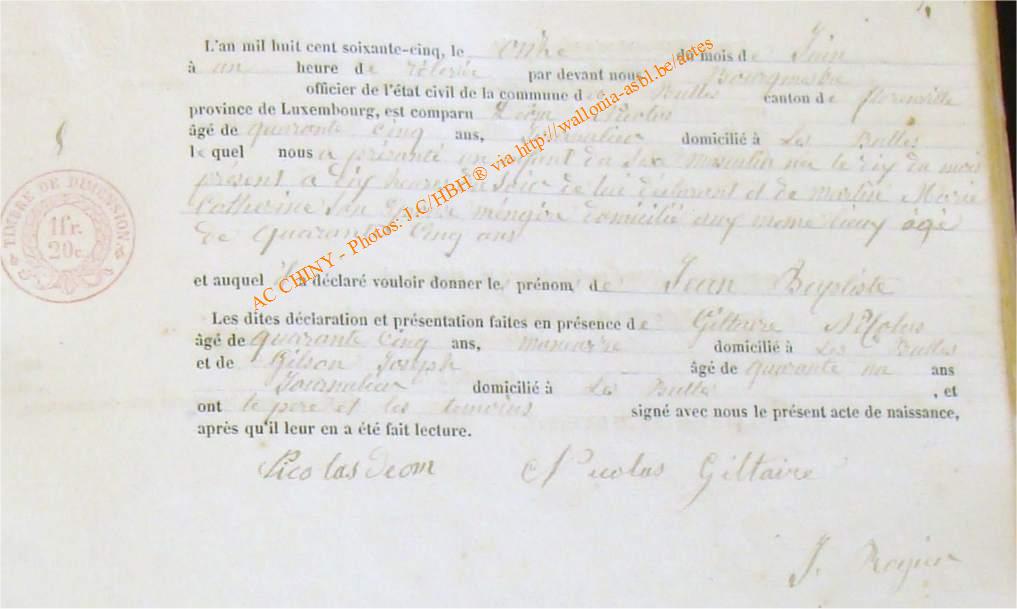 L'an mil huit cent soixante-cinq, le onze du mois de Juin
à un heure de rélevée par devant nous Bourgmestre
officier de l'état civil de la commune de Les Bulles canton de florenville
province de Luxembourg, est comparu Déom Nicolas
âgé de quarante cinq ans, Journalier domicilié à Les Bulles
lequel nous a présanté un enfant du sex Masculin né le dix du mois
présent a dix heures du soir de lui déclarant et de martin Marie
Catherine son ménagère domicilié aux meme lieux âgé
de quarante Cinq ans
et auquel il a déclaré vouloir donner le prénom de Jean Baptiste
Les dites déclaration et présentation faites en présence de Giltaire Nicolas
âgé de quarante Cinq ans, domicilié à Les Bulles
et de Gilson Joseph âgé de quarante un ans
Journalier domicilié à Les Bulles , et
ont le pere et les temoins signé avec nous le présent acte de naissance,
après qu'il leur en a été fait lecture.
Nicolas Deom Nicolas Giltaire
TIMBRE DE DIMENSION
1 fr.
20 c.
AC CHINY - Photos: J.C/HBH ® via http://wallonia-asbl.be/actes